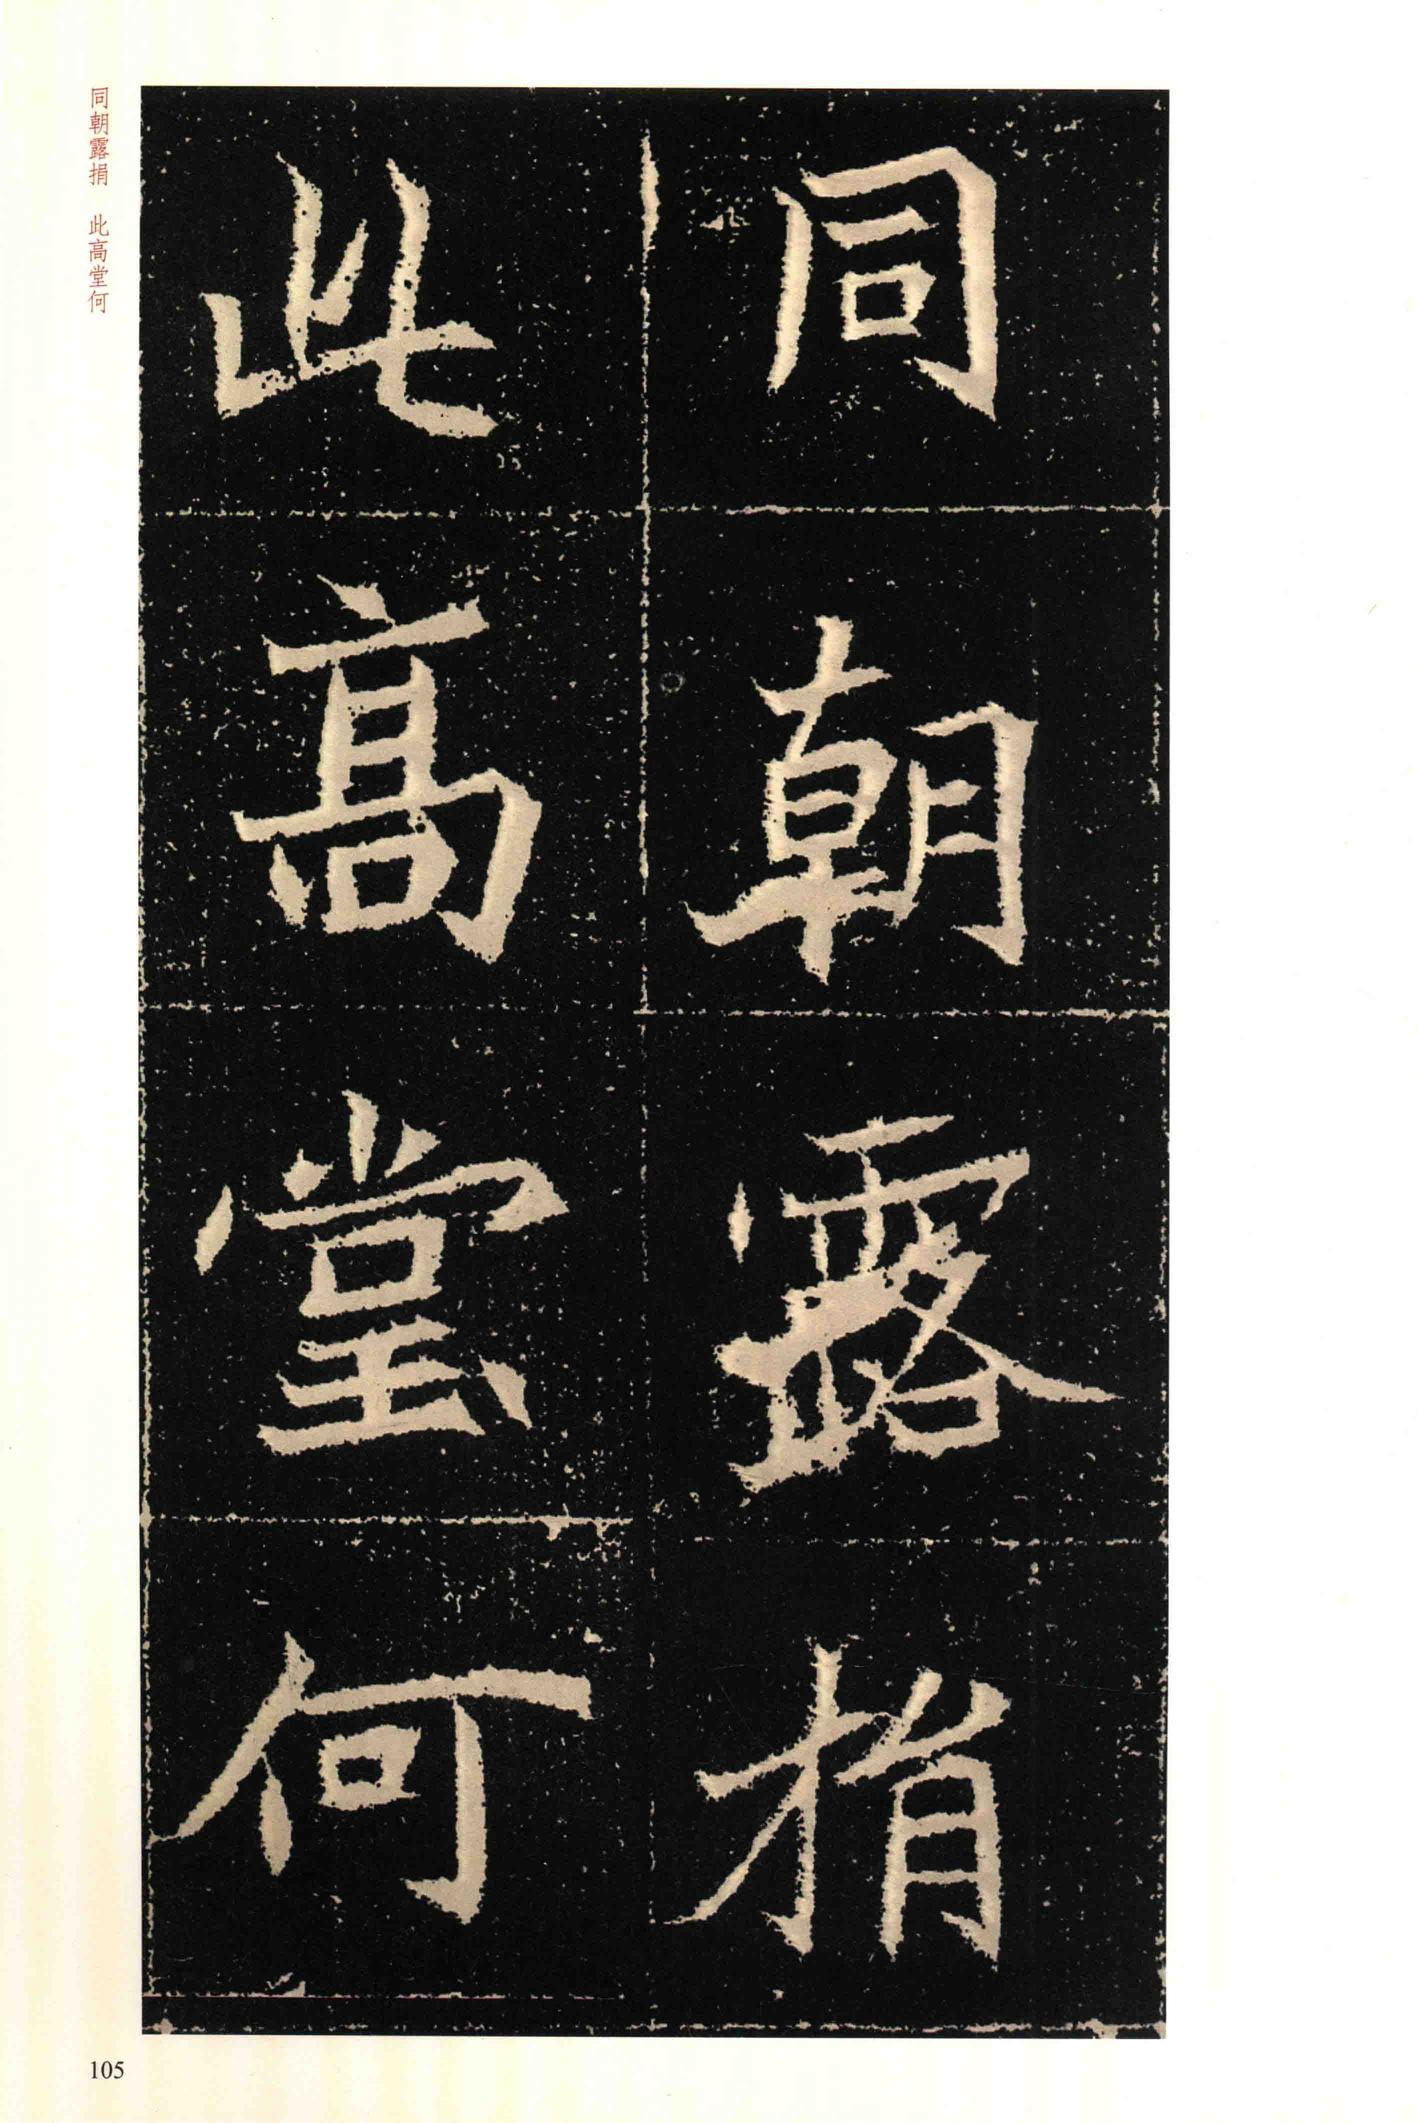 同朝露捐
此高堂何
同朝露捐 此高堂何
105